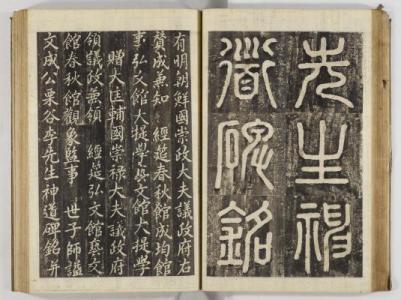 先生神
道碑銘
有明朝鮮國崇政大夫議政府右
贊成兼知 經筵春秋館成均館
事弘文館大提學藝文館大提學
贈大匡輔國崇祿大夫議政府
領議政兼領 經筵弘文館藝文
館春秋館觀象監事 世子師謚
文成公栗谷李先生神道碑銘并